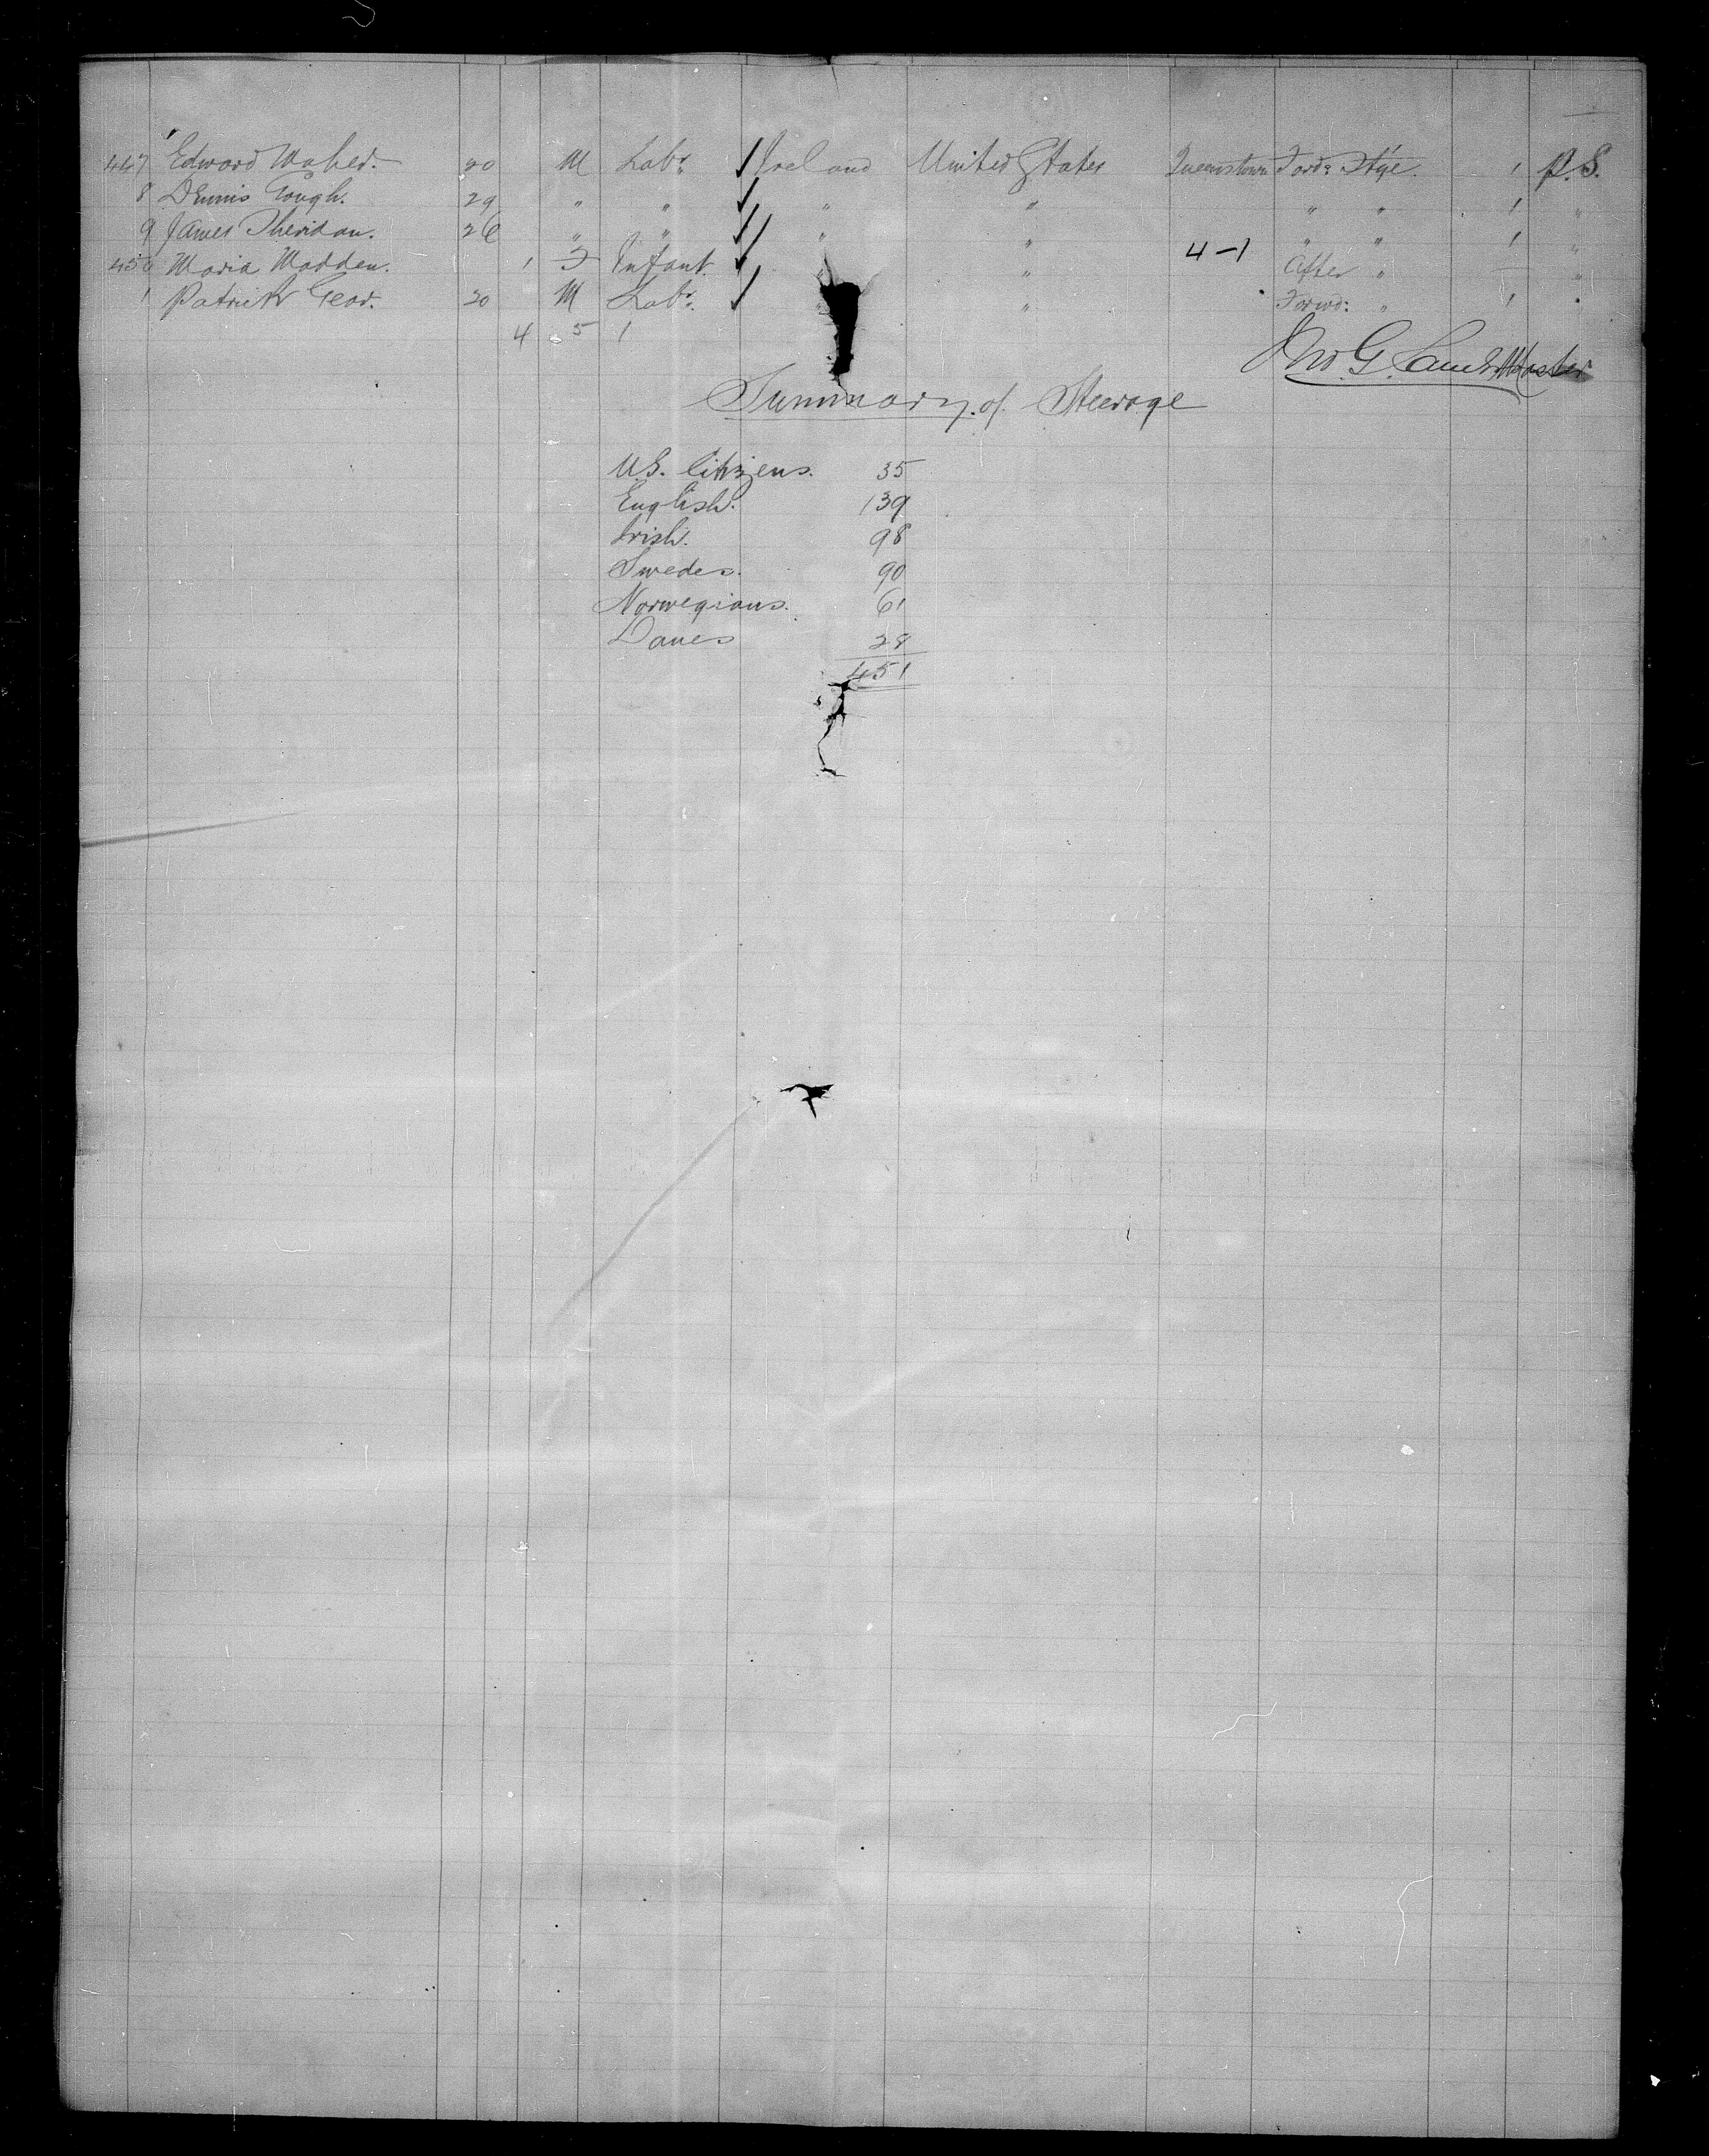 447 Edward Maher. 20 M Labr. Ireland United States Queenstown Ford: Stge. 1 P.S.
8 Dennis Gough. 29 " " " " " " 1 "
9 James Sheridan. 26 " " " " " " 1 "
4-1
450 Maria Madden. 1 F Infant. " " After " "
1 Patrick 20 M Labr. " " Forwd: " 1 "
4 5 1
Jno G. Master
Summary of Steerage
U.S. Citizens. 35
English. 139
Irish. 98
Swedes. 90
Norwegians. 61
Danes 28
451